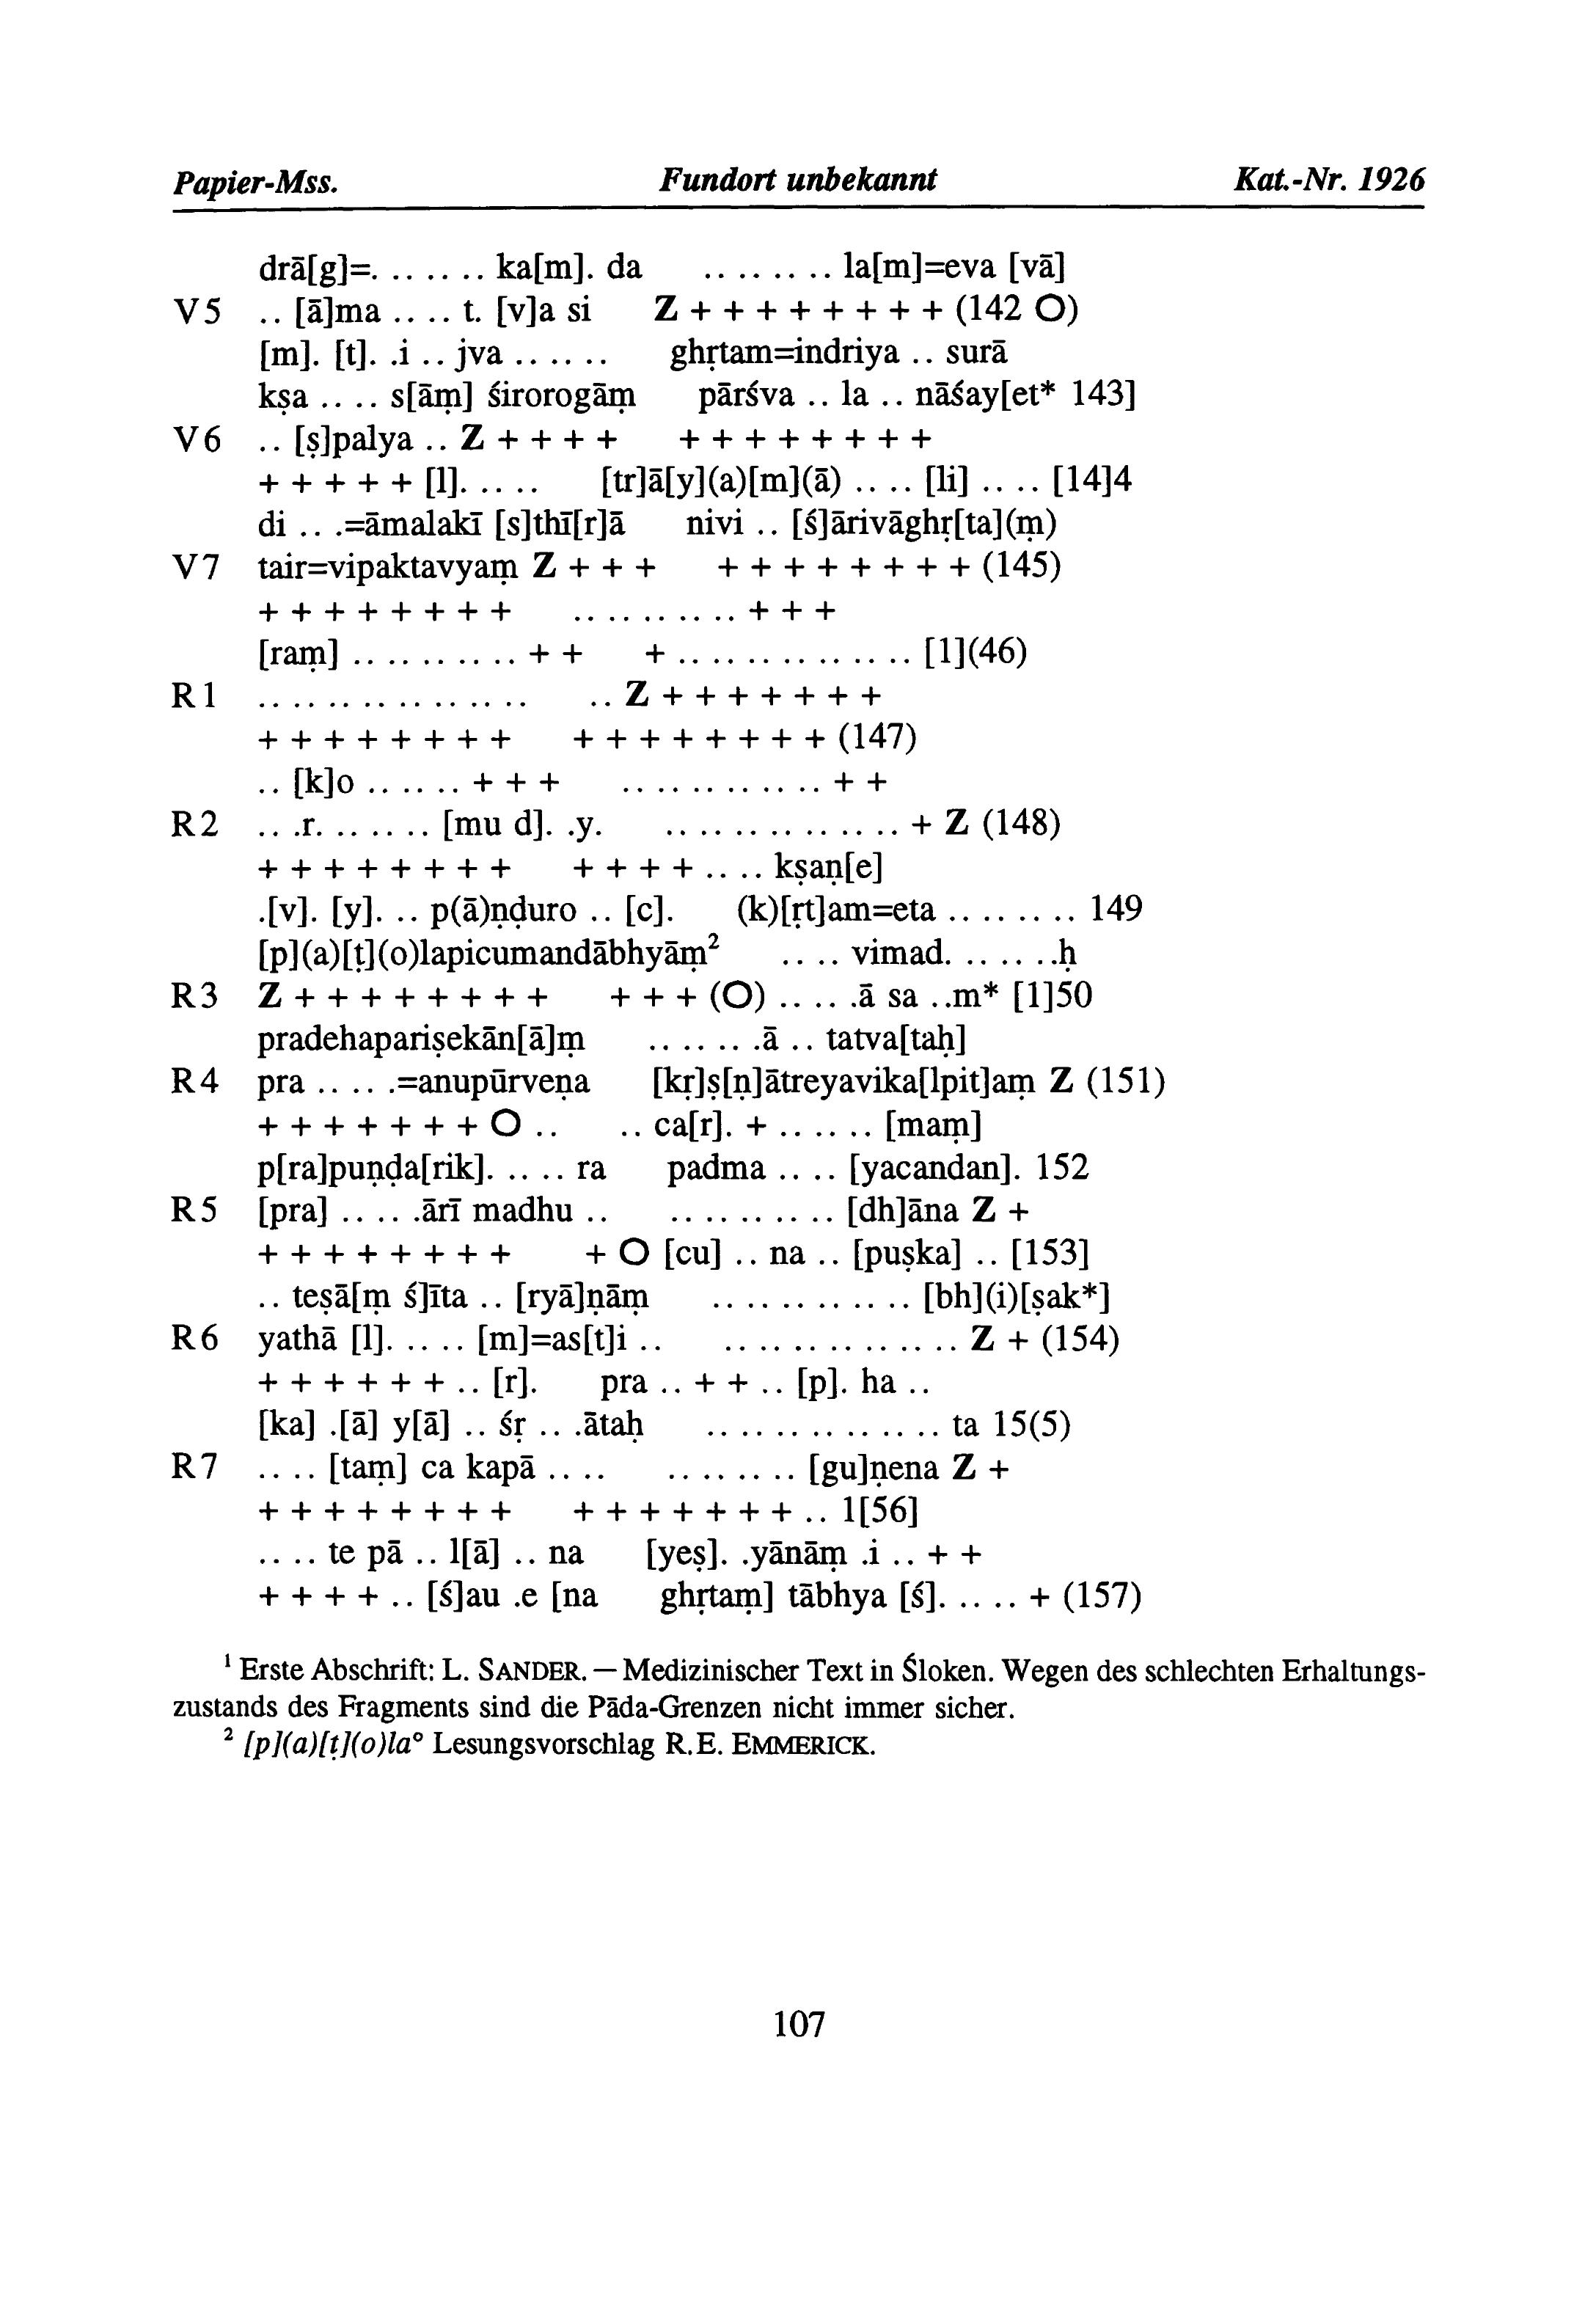 Papier-Mss. Fundort unbekannt Kat.-Nr. 1926
drā[g]=. .. .. .. ka[m]. da .. .. .. .. la[m]=eva [vā]
V5 .. [ā]ma .. .. t. [v]a si Z + + + + + + + + (142 O)
[m]. [t]. .i .. jva .. .. .. ghṛtam=indriya .. surā
kṣa .. .. s[āṃ] śirorogāṃ pārśva .. la .. nāśay[et* 143]
V6 .. [ṣ]palya .. Z + + + + + + + + + + + +
+ + + + + [l]. .. .. [tr]ā[y](a)[m](ā) .. .. [li] .. .. [14]4
di .. .=āmalakī [s]thī[r]ā nivi .. [ś]ārivāghṛ[ta](ṃ)
V7 tair=vipaktavyaṃ Z + + + + + + + + + + + (145)
+ + + + + + + + .. .. .. .. .. + + +
[raṃ] .. .. .. .. .. + + + .. .. .. .. .. .. .. [1](46)
R1 .. .. .. .. .. .. .. .. .. Z + + + + + + +
+ + + + + + + + + + + + + + + + (147)
.. [k]o .. .. .. + + + .. .. .. .. .. .. + +
R2 .. .r. .. .. .. [mu d]. .y. .. .. .. .. .. .. .. + Z (148)
+ + + + + + + + + + + + .. .. kṣaṇ[e]
.[v]. [y]. .. p(ā)ṇḍuro .. [c]. (k)[ṛt]am=eta .. .. .. .. 149
[p](a)[ṭ](o)lapicumandābhyāṃ² .. .. vimad. .. .. .ḥ
R3 Z + + + + + + + + + + + (O) .. .. .ā sa ..m* [1]50
pradehapariṣekān[ā]ṃ .. .. .. .ā .. tatva[taḥ]
R4 pra .. .. .=anupūrveṇa [kṛ]ṣ[ṇ]ātreyavika[lpit]aṃ Z (151)
+ + + + + + + O .. .. ca[r]. + .. .. .. [maṃ]
p[ra]puṇḍa[rik]. .. .. ra padma .. .. [yacandan]. 152
R5 [pra] .. .. .ārī madhu .. .. .. .. .. .. [dh]āna Z +
+ + + + + + + + + O [cu] .. na .. [puṣka] .. [153]
.. teṣā[ṃ ś]īta .. [ryā]ṇāṃ .. .. .. .. .. .. [bh](i)[ṣak*]
R6 yathā [l]. .. .. [m]=as[t]i .. .. .. .. .. .. .. .. Z + (154)
+ + + + + + .. [r]. pra .. + + .. [p]. ha ..
[ka] .[ā] y[ā] .. śṛ .. .ātaḥ .. .. .. .. .. .. .. ta 15(5)
R7 .. .. [taṃ] ca kapā .. .. .. .. .. .. [gu]ṇena Z +
+ + + + + + + + + + + + + + + .. 1[56]
.. .. te pā .. l[ā] .. na [yeṣ]. .yānāṃ .i .. + +
+ + + + .. [ś]au .e [na ghṛtaṃ] tābhya [ś]. .. .. + (157)
¹ Erste Abschrift: L. SANDER. — Medizinischer Text in Śloken. Wegen des schlechten Erhaltungs-
zustands des Fragments sind die Pāda-Grenzen nicht immer sicher.
² [p](a)[ṭ](o)la° Lesungsvorschlag R.E. EMMERICK.
107